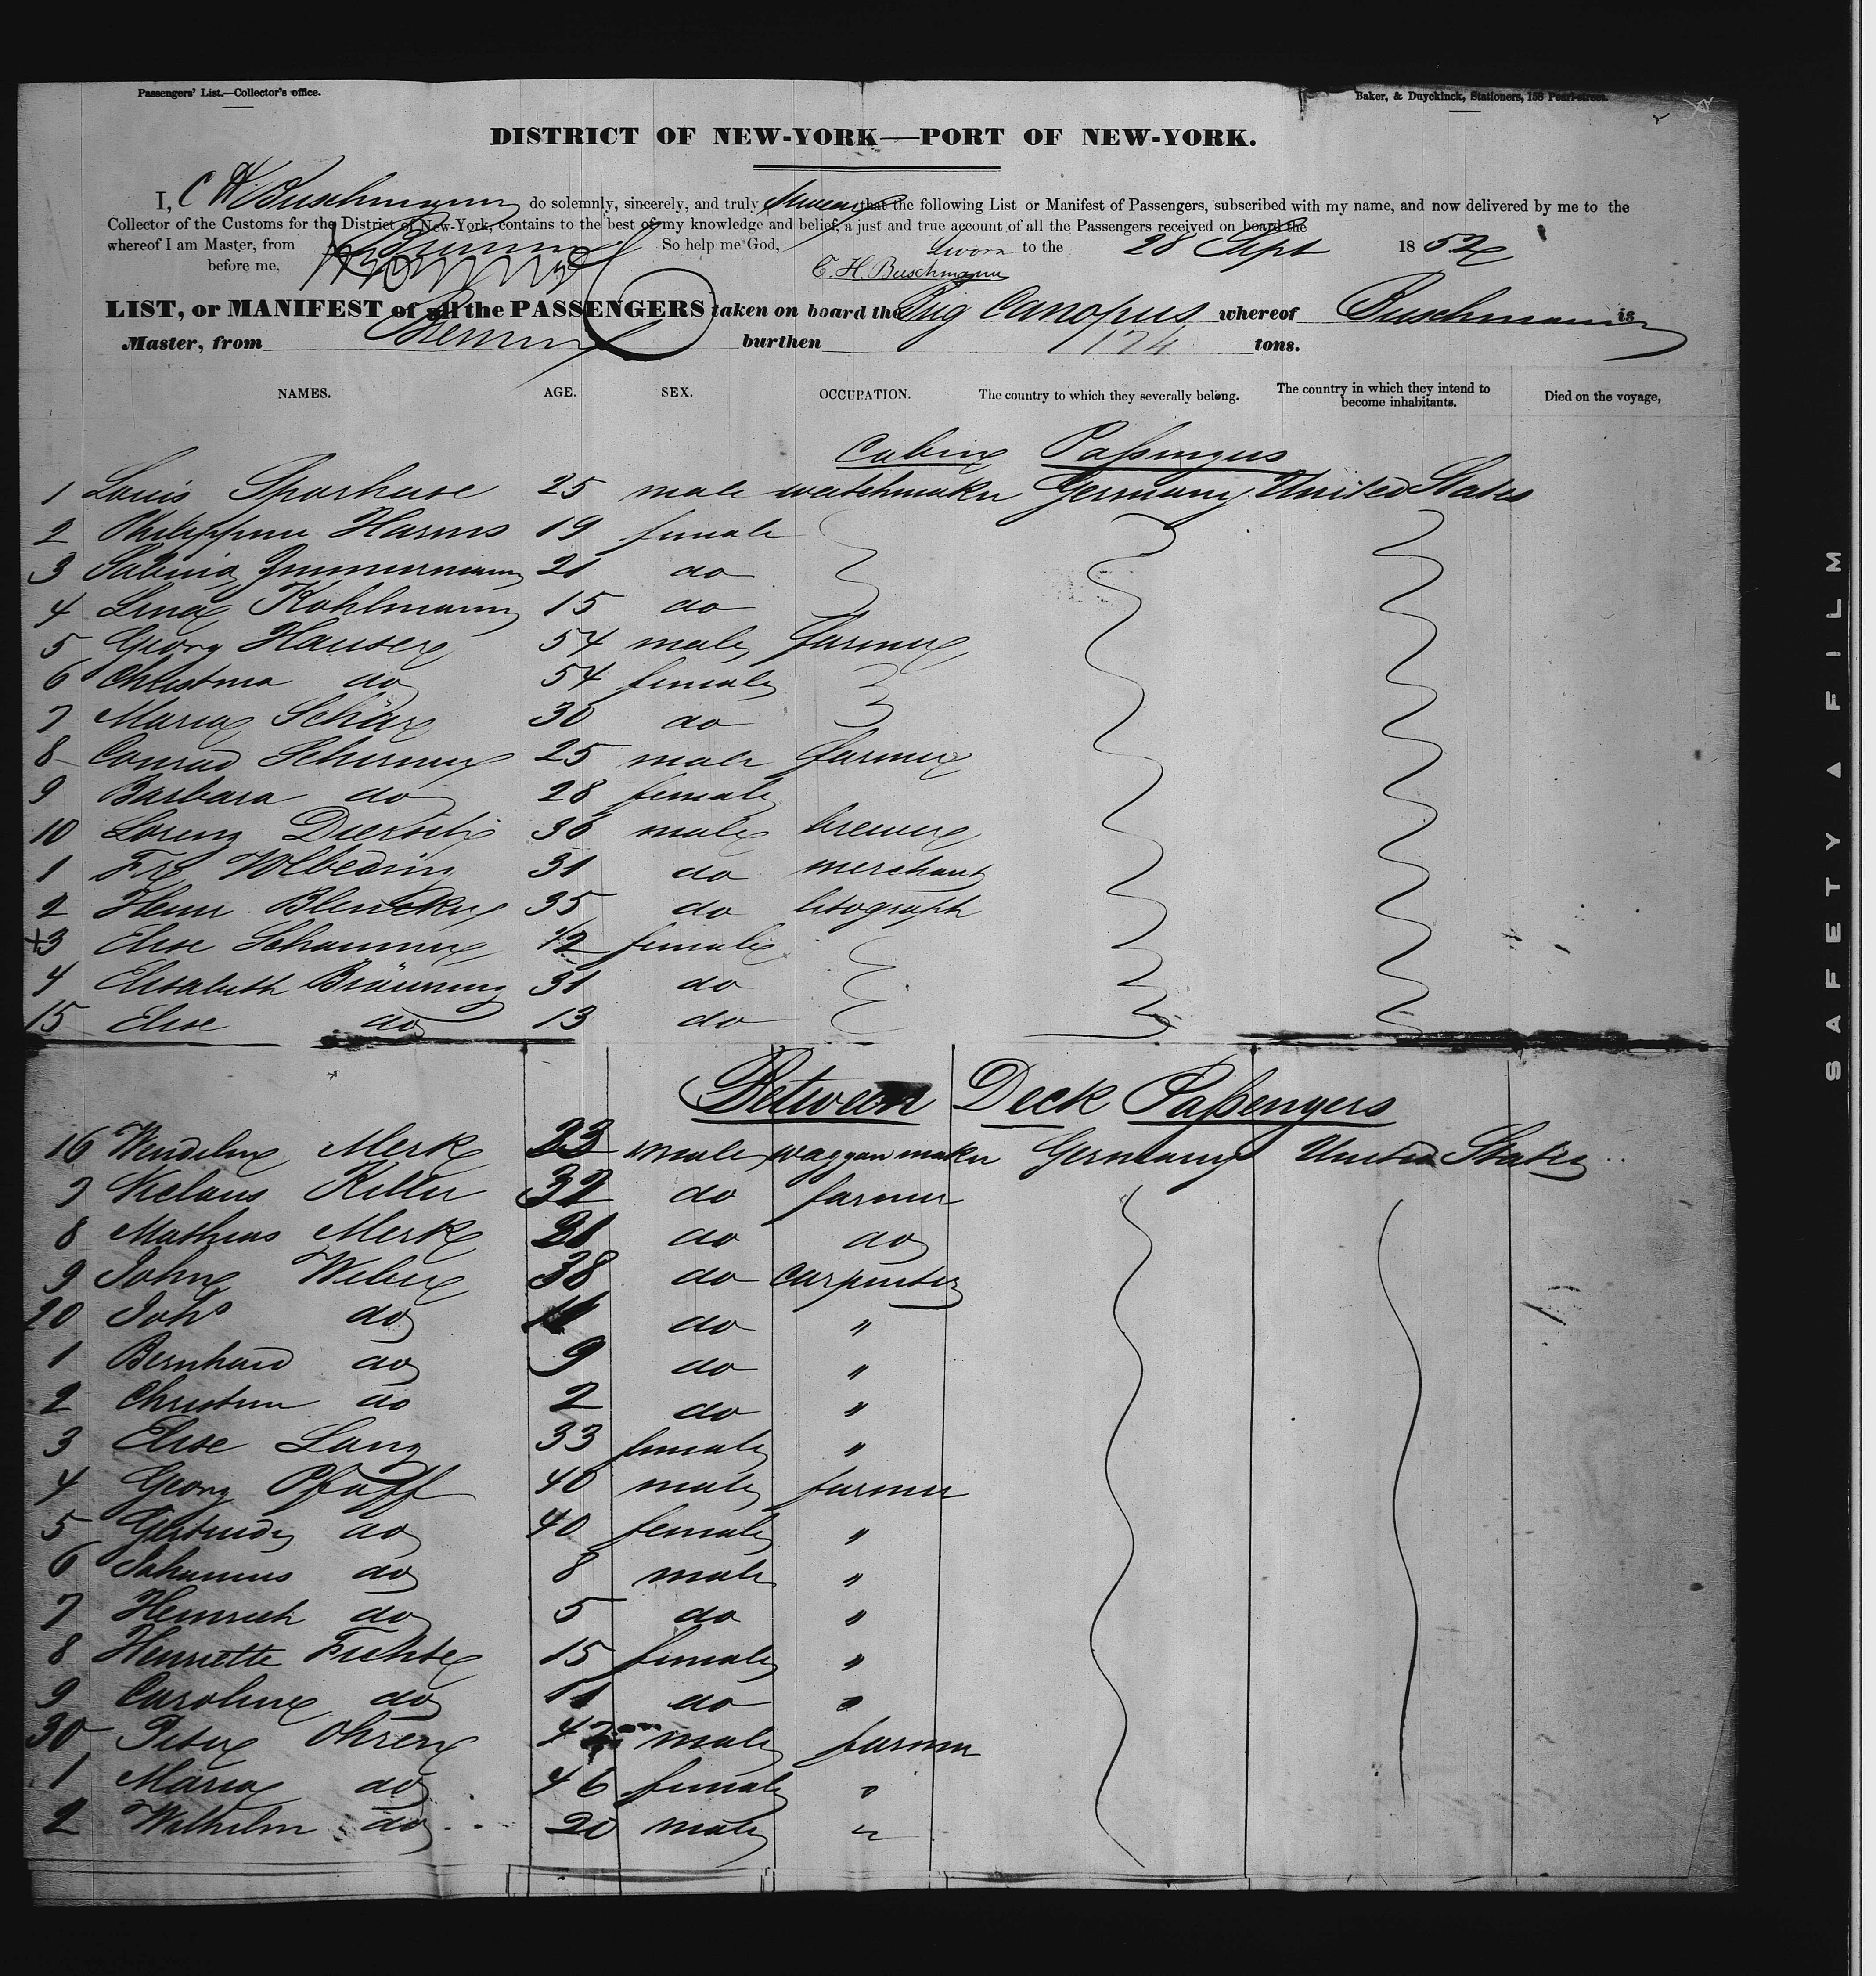 Passengers' List.—Collector's office.
Baker, & Duyckinck, Stationers, 158 Pearl-street.
DISTRICT OF NEW-YORK—PORT OF NEW-YORK.
I, C H Buschmann do solemnly, sincerely, and truly swear that the following List or Manifest of Passengers, subscribed with my name, and now delivered by me to the
Collector of the Customs for the District of New-York, contains to the best of my knowledge and belief, a just and true account of all the Passengers received on board the
whereof I am Master, from Bremen So help me God, Sworn to the 28 Sept 1852
before me, C. H. Buschmann
LIST, or MANIFEST of all the PASSENGERS taken on board the Brig Canopus whereof Buschmann is
Master, from Bremen burthen 174 tons.
NAMES. AGE. SEX. OCCUPATION. The country to which they severally belong. The country in which they intend to become inhabitants. Died on the voyage,
Cabin Paſsengers
1 Louis Sparhuse 25 male watchmaker Germany United States
2 Philippine Harms 19 female
3 Sabina Zimmermann 21 do
4 Lina Kohlmann 15 do
5 Georg Hauser 54 male farmer
6 Christina do 54 female
7 Maria Schär 30 do
8 Conrad 25 male farmer
9 Barbara do 28 female
10 Lorenz 36 male brewer
1 Fr Wolbeding 31 do merchant
2 Henr. 35 do litograph
3 Elise 12 female
4 Elisabeth Bräuning 31 do
15 Elise do 13 do
Between Deck Paſsengers
16 Wendelin Merk 23 male waggon maker Germany United States
7 Niclaus 32 do farmer
8 Mathias Merk 21 do do
9 John Weber 38 do carpenter
20 Johs do 11 do "
1 Bernhard do 9 do "
2 Christian do 2 do "
3 Elise Lang 33 female "
4 Georg Pfaff 40 male farmer
5 do 40 female "
6 Johannes do 8 male "
7 Heinrich do 5 do "
8 Henriette Fichte 15 female "
9 Caroline do 11 do "
30 Peter Ohren male farmer
1 Maria do 46 female "
2 Wilhelm do 20 male "
SAFETY ▲ FILM